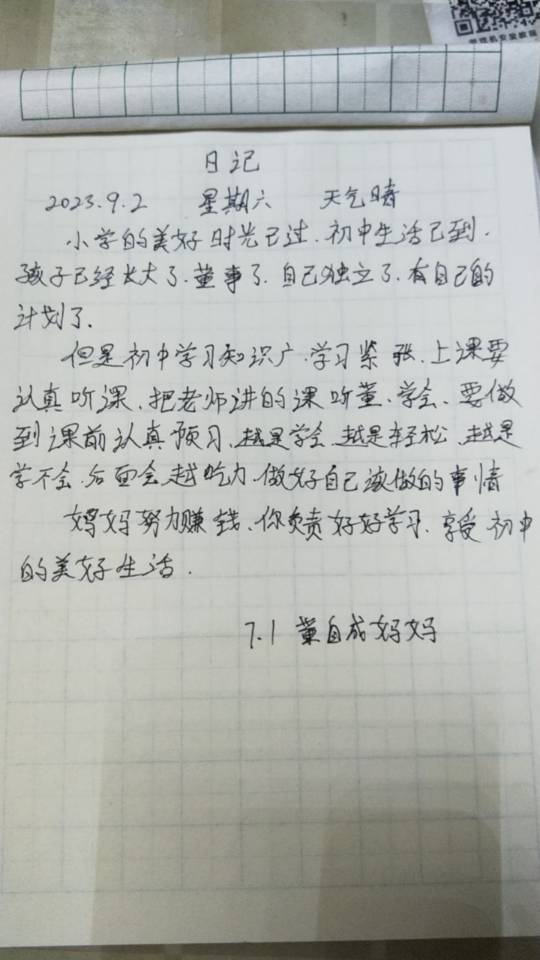 日记
2023.9.2 星期六 天气晴
小学的美好时光已过.初中生活已到.
孩子已经长大了.董事了.自己独立了.有自己的
计划了.
但是初中学习知识广.学习紧张.上课要
认真听课.把老师讲的课听董.学会.要做
到课前认真预习.越是学会.越是轻松.越是
学不会.后面会越吃力.做好自己该做的事情
妈妈努力赚钱.你负责好好学习.享受初中
的美好生活.
7.1 董自成妈妈